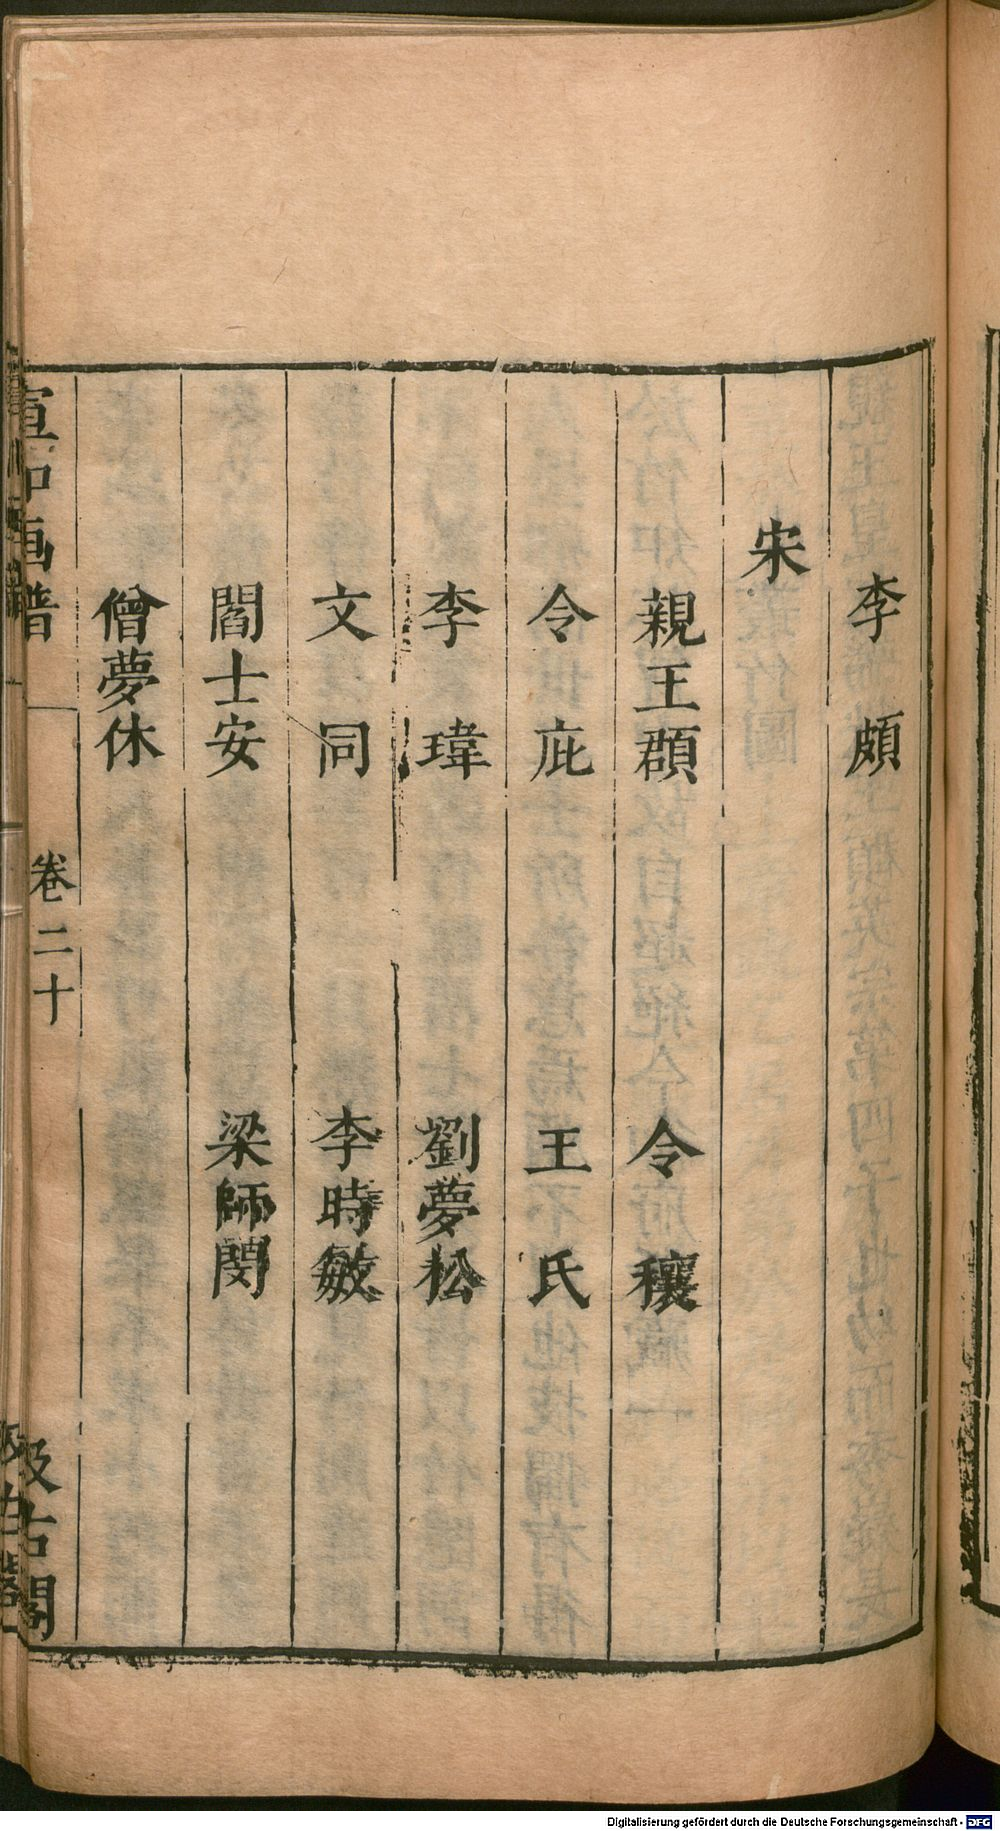 李 頗
宋
親王頵 令 穰
令 庇 王 氏
李 瑋 劉夢松
文 同 李時敏
閻士安 梁師閔
僧夢休
宣和画譜 卷二十 汲古閣
Digitalisierung gefördert durch die Deutsche Forschungsgemeinschaft - DFG